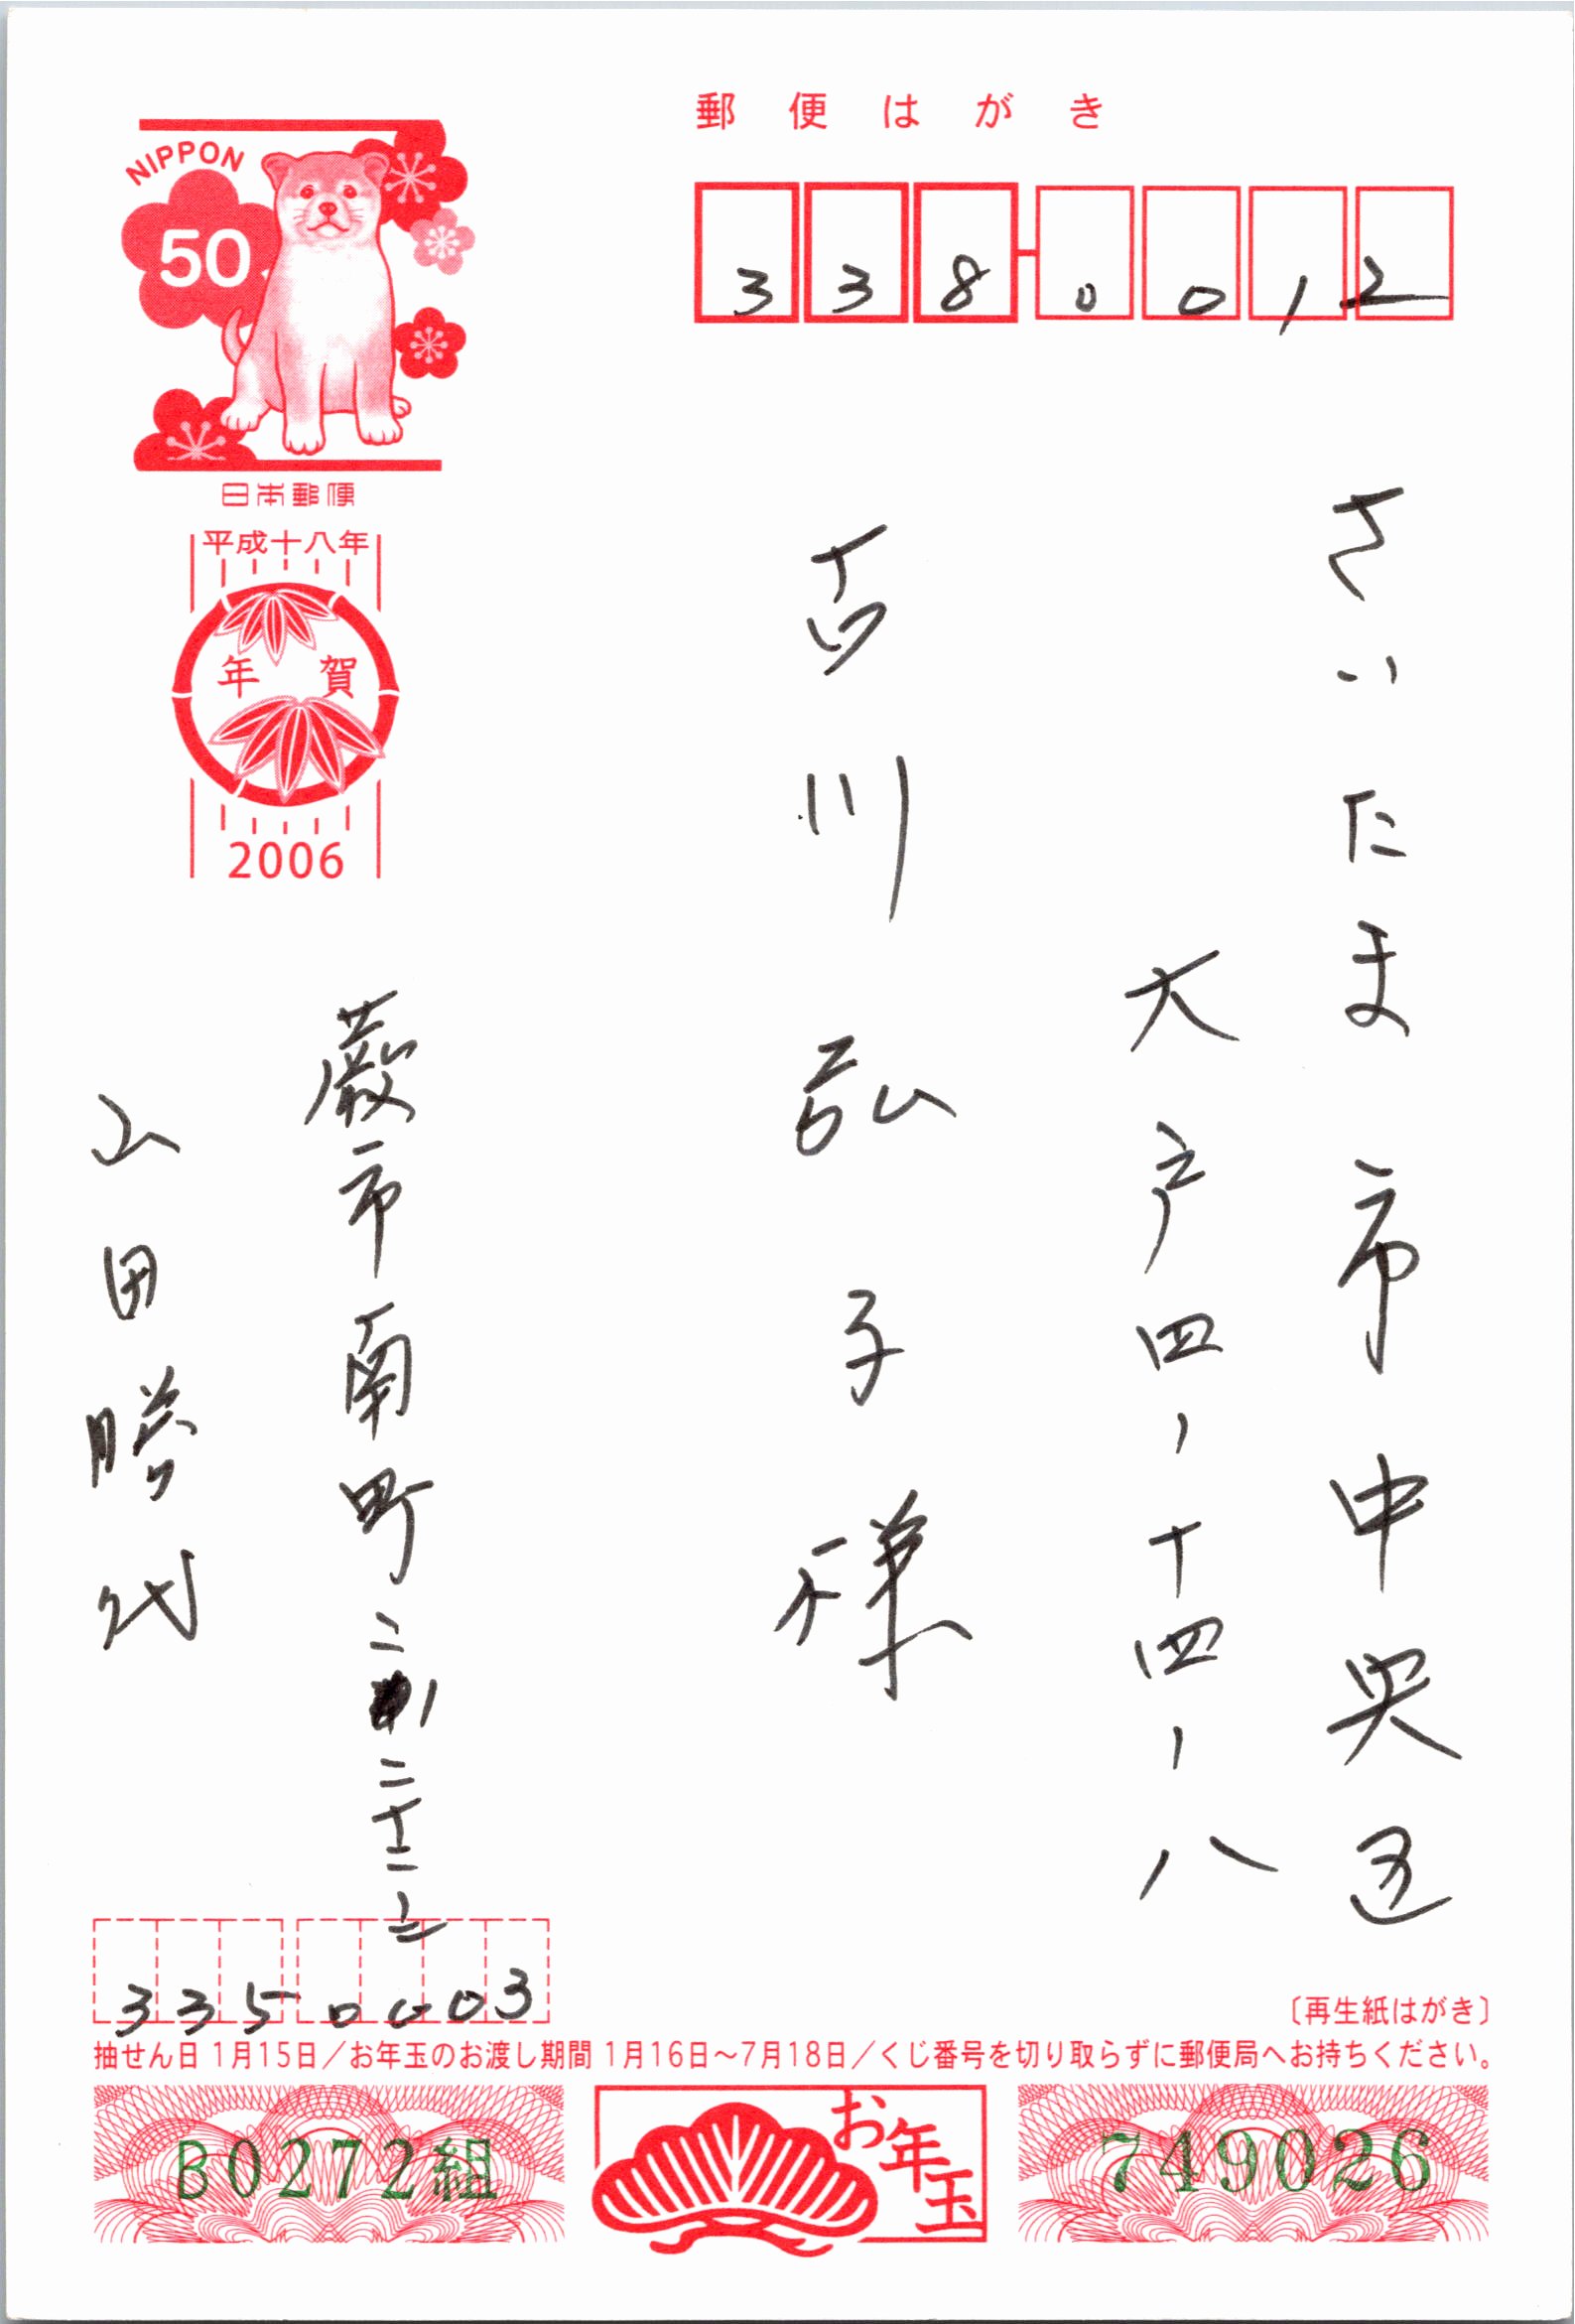 郵便はがき
338-0012
NIPPON
50
日本郵便
平成十八年
年賀
2006
さいたま市中央区
大戸四ー十四ー八
古川弘子様
蕨市南町二ー二十二ー三
山田勝代
335 0003
〔再生紙はがき〕
抽せん日 1月15日／お年玉のお渡し期間 1月16日〜7月18日／くじ番号を切り取らずに郵便局へお持ちください。
B0272組
お年玉
749026